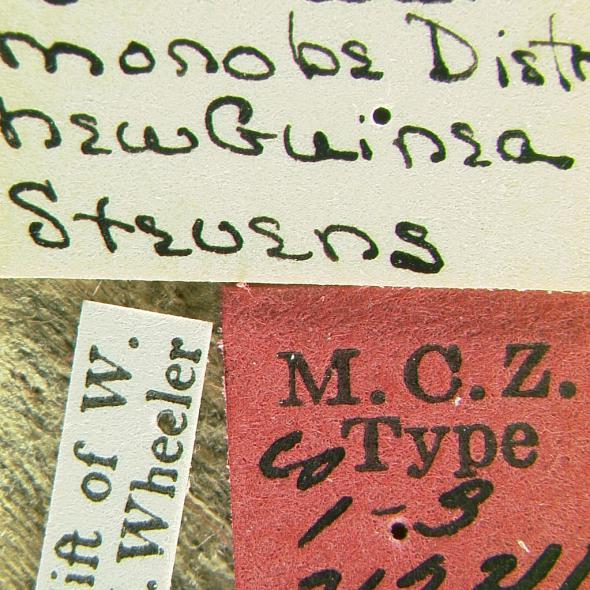 morobe Distr
new Guinea
Stevens
ift of W.
. Wheeler
M.C.Z.
CoType
1-3